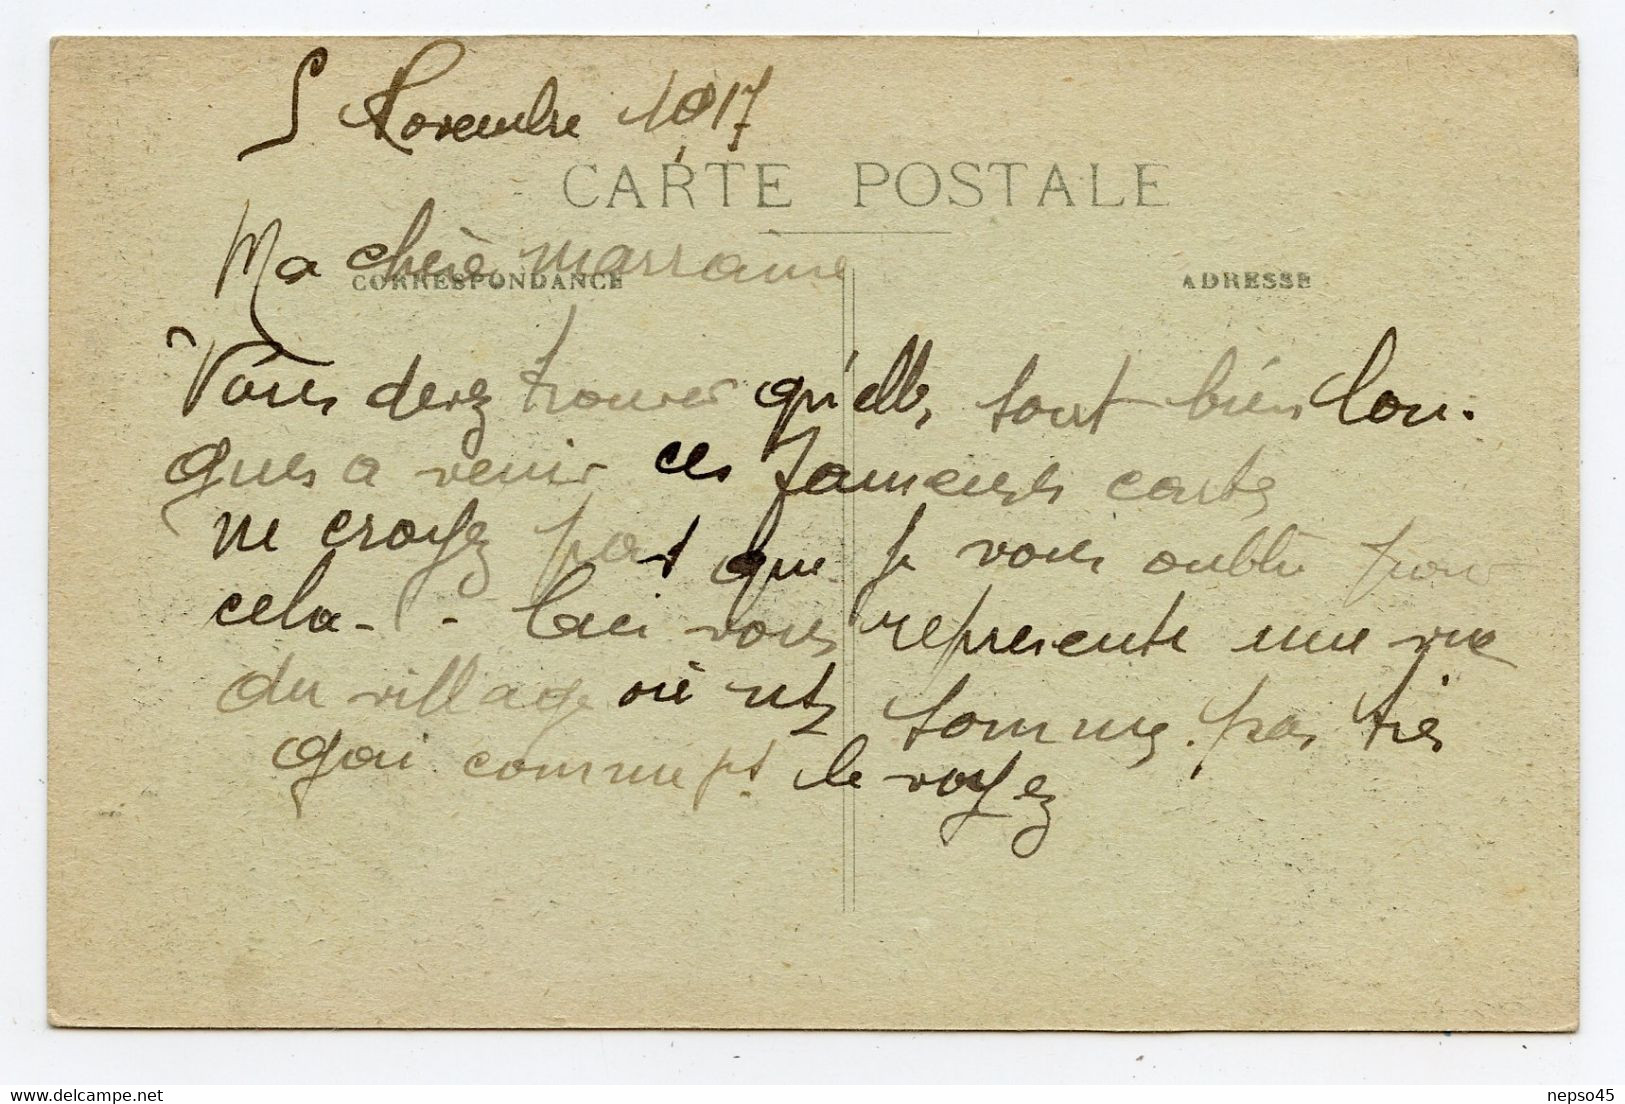 5 Novembre 1917
CARTE POSTALE
Ma chère marraine
CORRESPONDANCE
ADRESSE
Vous devez trouver qu'elles sont bien lon-
gues a venir ces fameuses cartes
ne croyez pas que je vous oublie pour
cela - . - Ceci vous represente une vue
du village où nous sommes. pas très
gai comme vous le voyez
delcampe.net
nepso45